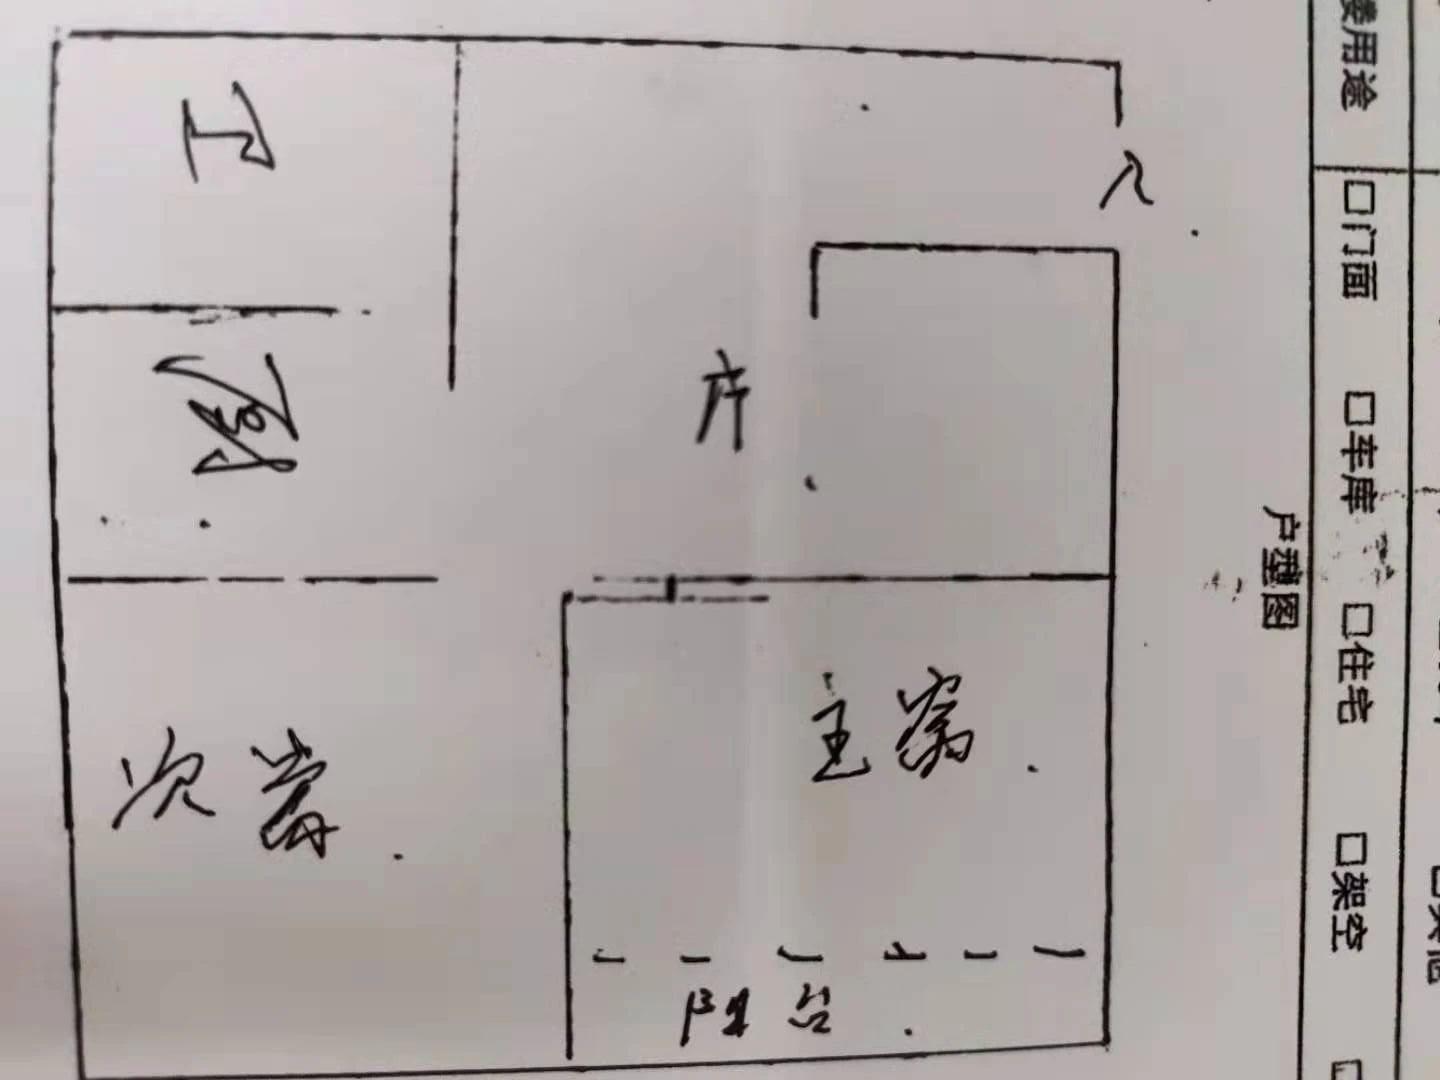 卫
入
厨
厅
主窝
次卧
阳台
户型图
用途
□门面
□车库
□住宅
□架空